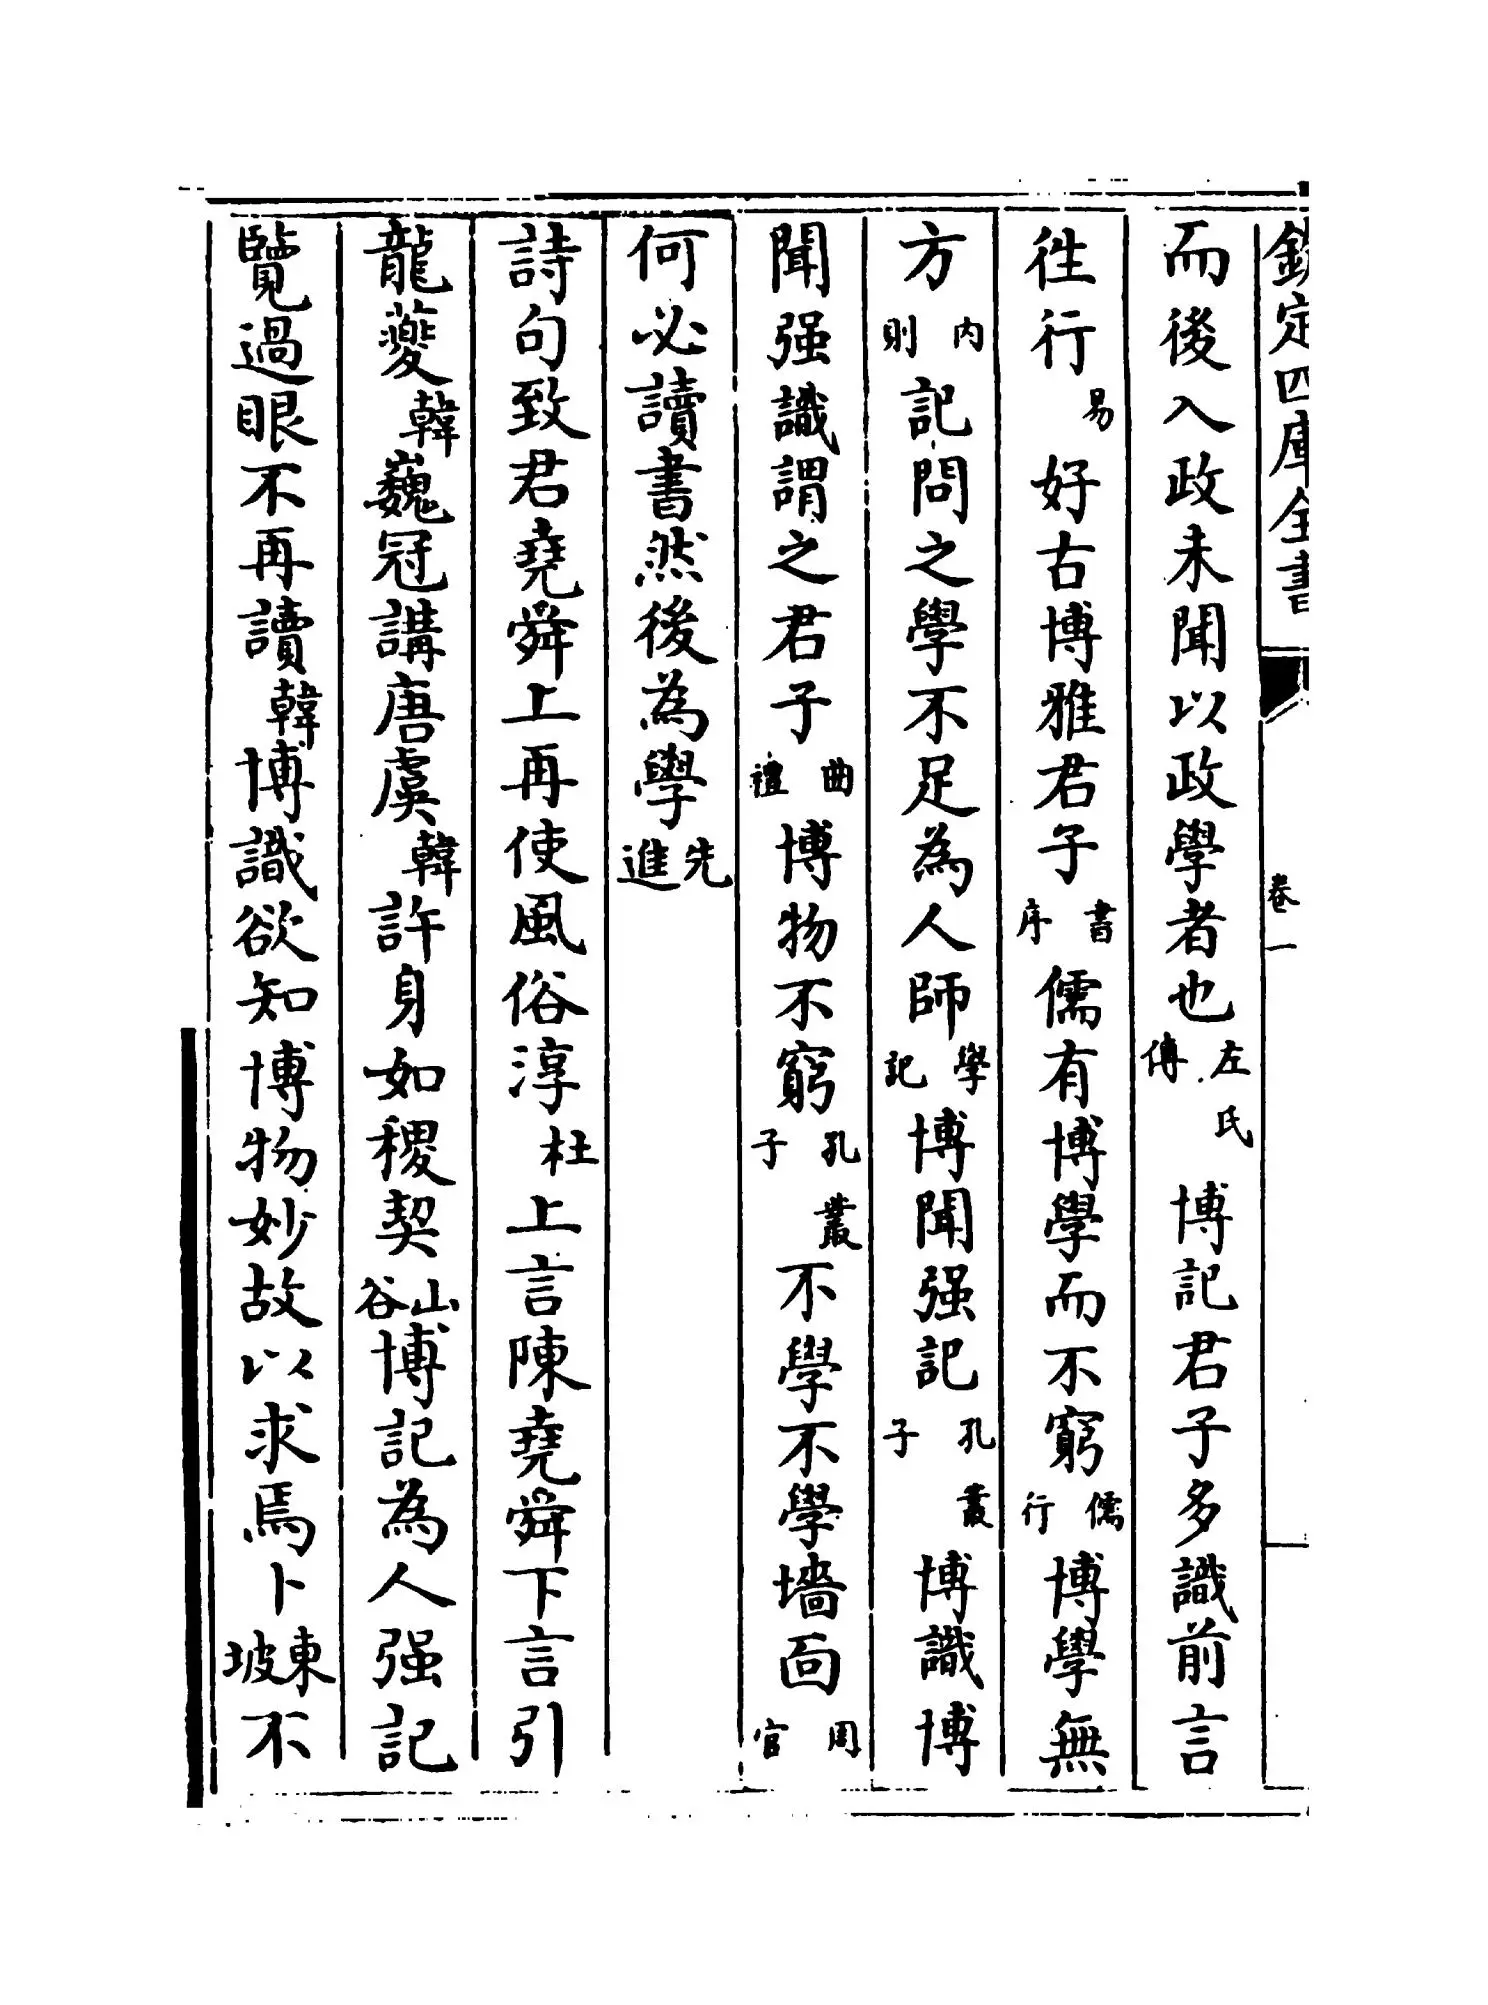 欽定四庫全書 卷一
而後入政未聞以政學者也左氏傳博記君子多識前言
徃行易好古博雅君子書序儒有博學而不窮儒行博學無
方内則記問之學不足為人師學記博聞强記孔叢子博識博
聞强識謂之君子曲禮博物不窮孔叢子不學不學墻面周官
何必讀書然後為學先進
詩句致君堯舜上再使風俗淳杜上言陳堯舜下言引
龍夔韓巍冠講唐虞韓許身如稷契山谷博記為人强記
覽過眼不再讀韓博識欲知博物妙故以求焉卜東坡不